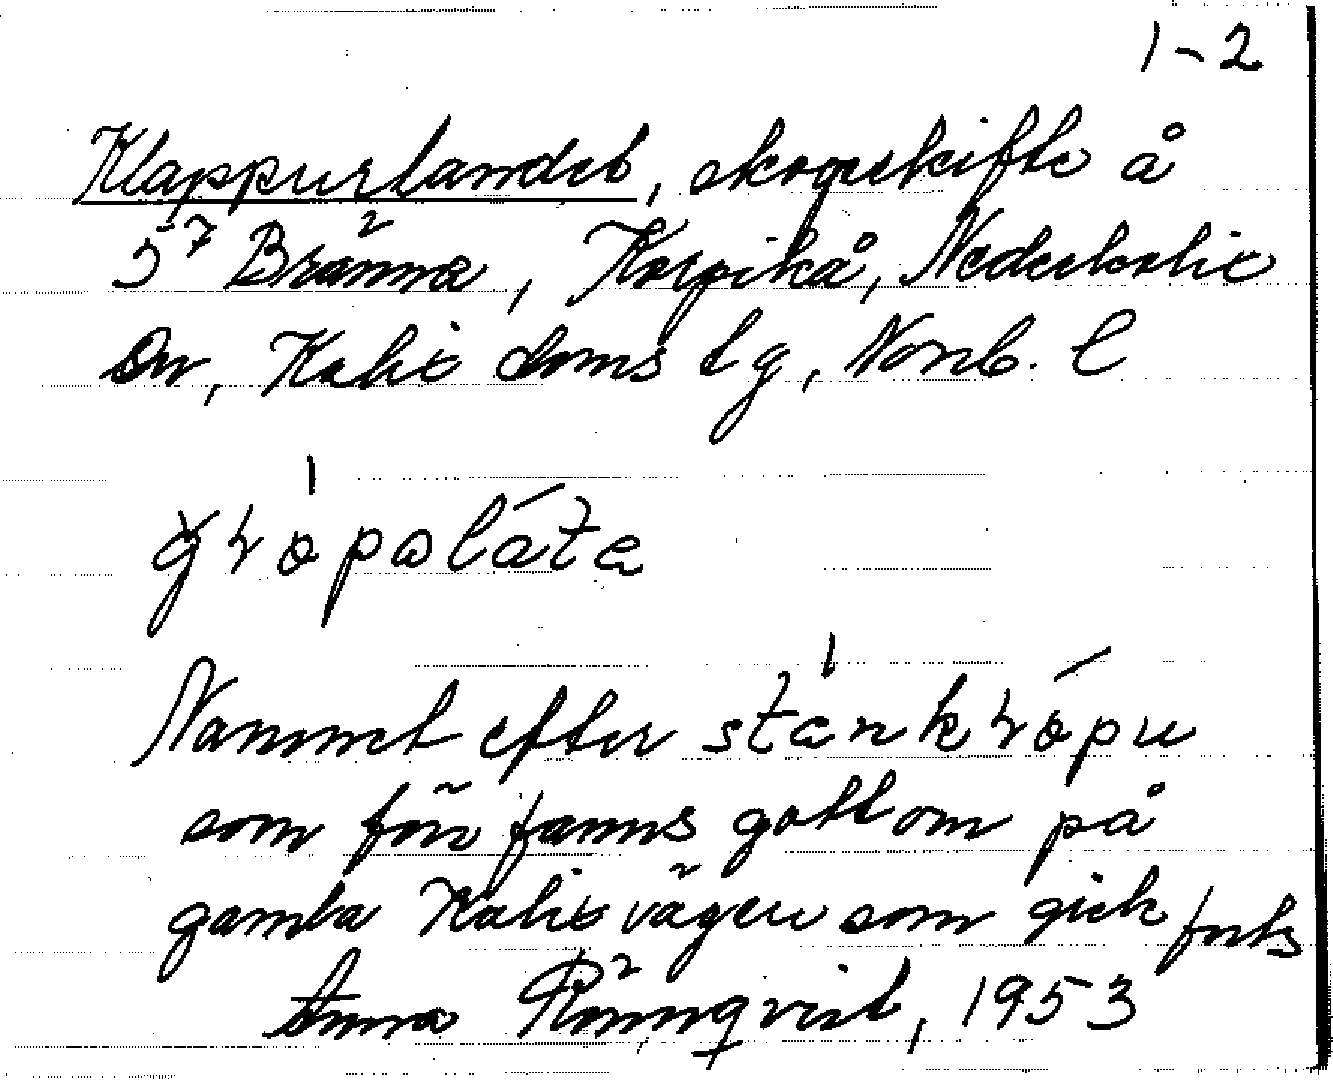 1-2
Klappurlandet, skogsskifte å
5⁷ Bränna, Korpikå, Nederkalix
sn, Kalix doms lg, Norrb. l
Namnet efter
som förr fanns gott om på
gamla Kalixvägen som gick förbi
Anna Rönnqvist, 1953